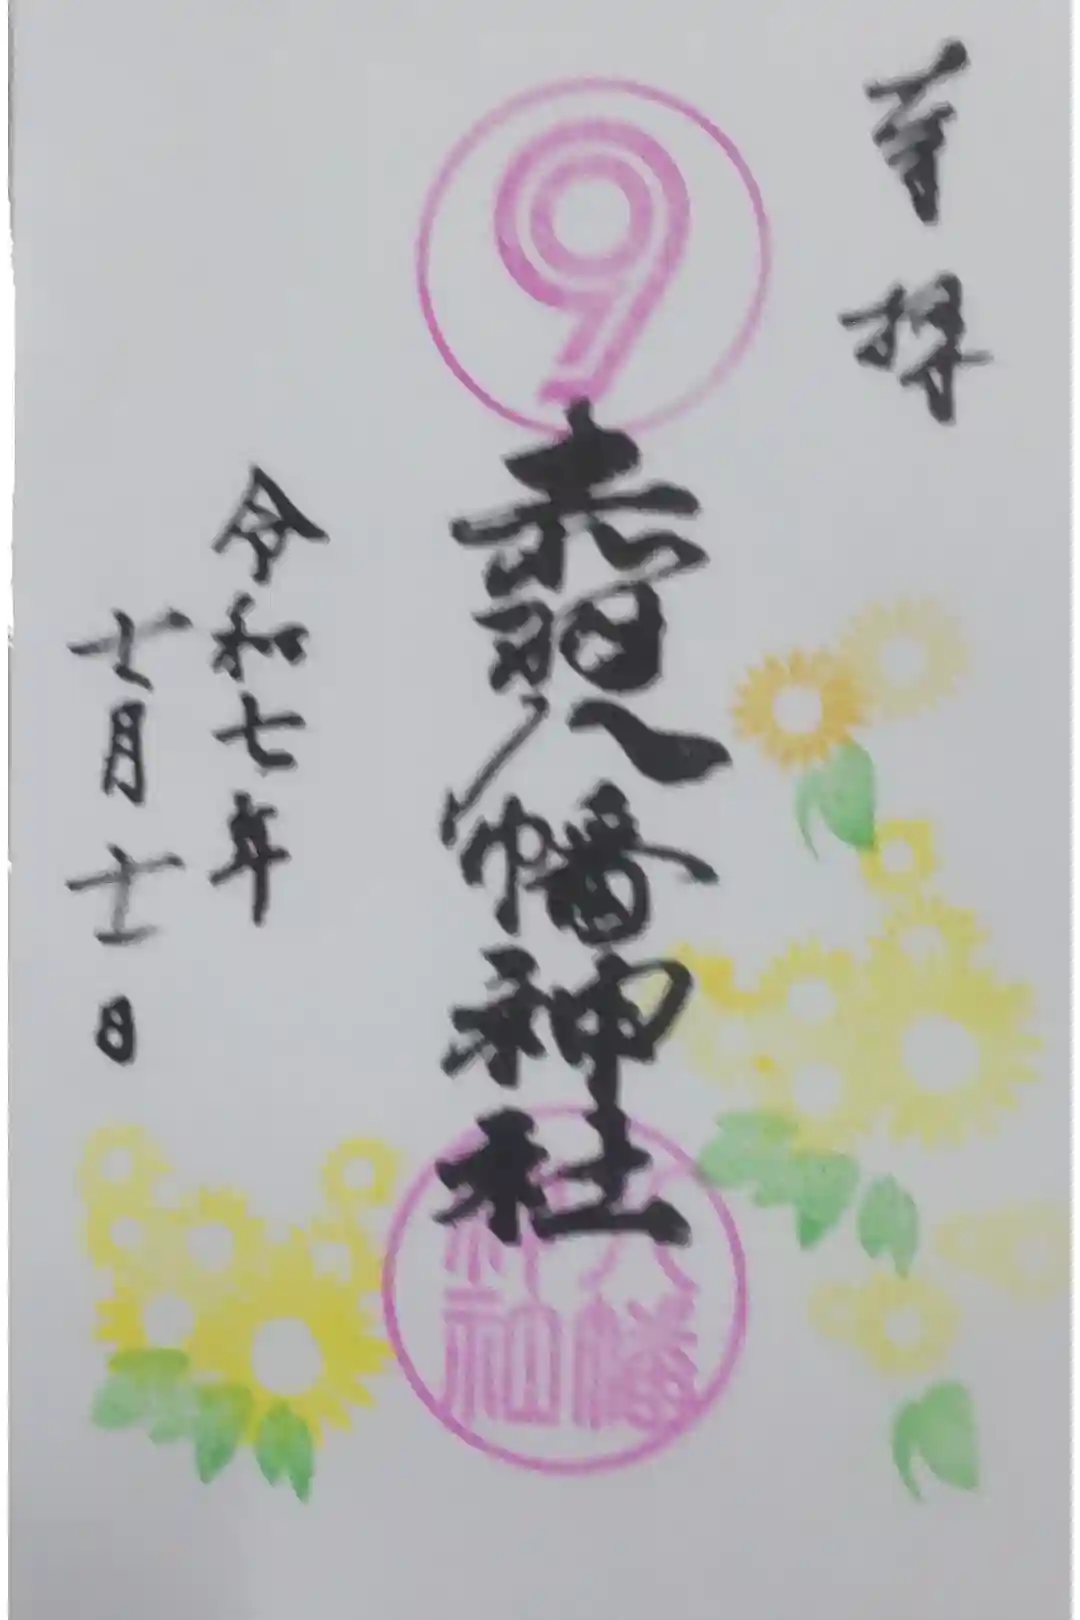 奉拝
9
赤羽八幡神社
八幡
神社
令和七年
十一月十一日